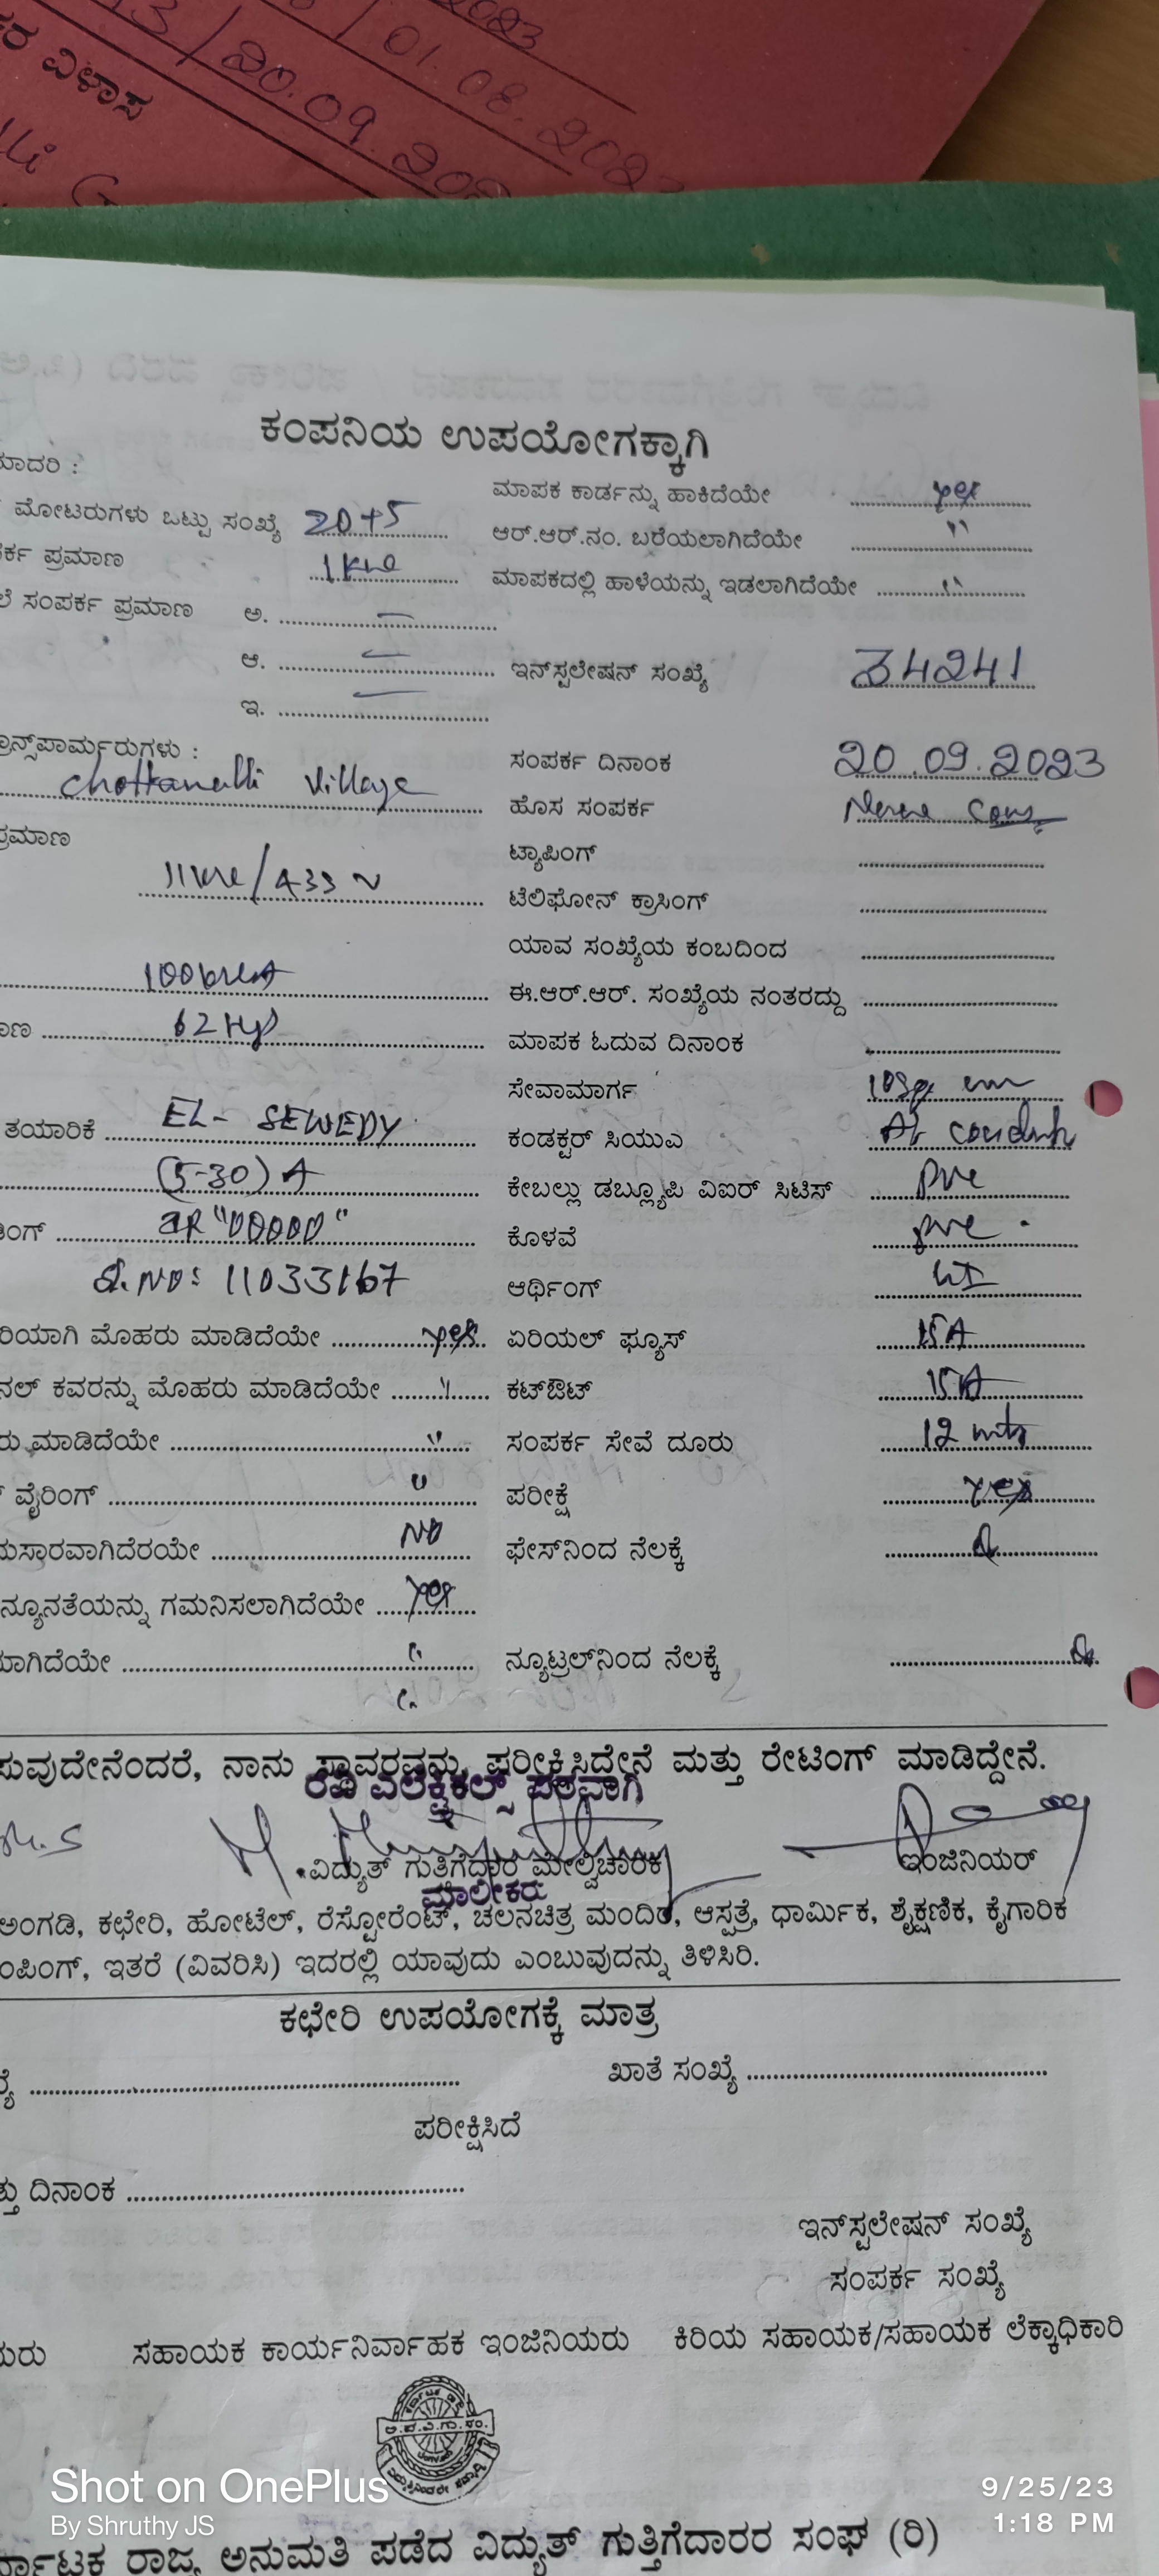 2023
13 / 20.09.202
01.08.2023
ರ ವಿಳಾಸ
lli G
ಕಂಪನಿಯ ಉಪಯೋಗಕ್ಕಾಗಿ
ಮಾದರಿ :
ಮಾಪಕ ಕಾರ್ಡನ್ನು ಹಾಕಿದೆಯೇ yes
ಮೋಟರುಗಳು ಒಟ್ಟು ಸಂಖ್ಯೆ 20+5
ಆರ್.ಆರ್.ನಂ. ಬರೆಯಲಾಗಿದೆಯೇ "
ರ್ಕ ಪ್ರಮಾಣ 1KW
ಮಾಪಕದಲ್ಲಿ ಹಾಳೆಯನ್ನು ಇಡಲಾಗಿದೆಯೇ "
ಲೆ ಸಂಪರ್ಕ ಪ್ರಮಾಣ ಅ. —
ಆ. — ಇನ್‌ಸ್ಟಲೇಷನ್ ಸಂಖ್ಯೆ 34241
ಇ. —
ರಾನ್ಸ್‌ಪಾರ್ಮರುಗಳು : ಸಂಪರ್ಕ ದಿನಾಂಕ 20.09.2023
Chottanalli Village ಹೊಸ ಸಂಪರ್ಕ
ಪ್ರಮಾಣ ಟ್ಯಾಪಿಂಗ್
/433 ಟೆಲಿಫೋನ್ ಕ್ರಾಸಿಂಗ್
ಯಾವ ಸಂಖ್ಯೆಯ ಕಂಬದಿಂದ
ಈ.ಆರ್.ಆರ್. ಸಂಖ್ಯೆಯ ನಂತರದ್ದು
ಾಣ ಮಾಪಕ ಓದುವ ದಿನಾಂಕ
ಸೇವಾಮಾರ್ಗ
ತಯಾರಿಕೆ EL- SEWEDY ಕಂಡಕ್ಟರ್ ಸಿಯುಎ
(5-30) A ಕೇಬಲ್ಲು ಡಬ್ಲ್ಯೂಪಿ ವಿಐರ್ ಸಿಟಿಸ್ PVC
ಿಂಗ್ IR "00000" ಕೊಳವೆ PVC
S.NO: 11033167 ಆರ್ಥಿಂಗ್
ರಿಯಾಗಿ ಮೊಹರು ಮಾಡಿದೆಯೇ yes ಏರಿಯಲ್ ಫ್ಯೂಸ್ 15A
ನಲ್ ಕವರನ್ನು ಮೊಹರು ಮಾಡಿದೆಯೇ " ಕಟ್‌ಔಟ್ 15A
ರು ಮಾಡಿದೆಯೇ " ಸಂಪರ್ಕ ಸೇವೆ ದೂರು 12 mts
ವೈರಿಂಗ್ " ಪರೀಕ್ಷೆ yes
ುಸ್ತಾರವಾಗಿದೆರಯೇ NO ಫೇಸ್‌ನಿಂದ ನೆಲಕ್ಕೆ
ನ್ಯೂನತೆಯನ್ನು ಗಮನಿಸಲಾಗಿದೆಯೇ yes
ಮಾಗಿದೆಯೇ " ನ್ಯೂಟ್ರಲ್‌ನಿಂದ ನೆಲಕ್ಕೆ
ಸುವುದೇನೆಂದರೆ, ನಾನು ಸ್ಥಾವರವನ್ನು ಪರೀಕ್ಷಿಸಿದ್ದೇನೆ ಮತ್ತು ರೇಟಿಂಗ್ ಮಾಡಿದ್ದೇನೆ.
ರವಿ ಎಲೆಕ್ಟ್ರಿಕಲ್ಸ್ ಪರವಾಗಿ
ವಿದ್ಯುತ್ ಗುತಿಗೆದಾರ ಮೇಲ್ವಿಚಾರಕ ಇಂಜಿನಿಯರ್
ಮಾಲೀಕರು
ಅಂಗಡಿ, ಕಛೇರಿ, ಹೋಟೆಲ್, ರೆಸ್ಟೋರೆಂಟ್, ಚಲನಚಿತ್ರ ಮಂದಿರ, ಆಸ್ಪತ್ರೆ, ಧಾರ್ಮಿಕ, ಶೈಕ್ಷಣಿಕ, ಕೈಗಾರಿಕ
ಂಪಿಂಗ್, ಇತರೆ (ವಿವರಿಸಿ) ಇದರಲ್ಲಿ ಯಾವುದು ಎಂಬುವುದನ್ನು ತಿಳಿಸಿರಿ.
ಕಛೇರಿ ಉಪಯೋಗಕ್ಕೆ ಮಾತ್ರ
ಖ್ಯೆ ಖಾತೆ ಸಂಖ್ಯೆ
ಪರೀಕ್ಷಿಸಿದೆ
ತ್ತು ದಿನಾಂಕ
ಇನ್‌ಸ್ಟಲೇಷನ್ ಸಂಖ್ಯೆ
ಸಂಪರ್ಕ ಸಂಖ್ಯೆ
ಯರು ಸಹಾಯಕ ಕಾರ್ಯನಿರ್ವಾಹಕ ಇಂಜಿನಿಯರು ಕಿರಿಯ ಸಹಾಯಕ/ಸಹಾಯಕ ಲೆಕ್ಕಾಧಿಕಾರಿ
ರ್ನಾಟಕ ರಾಜ್ಯ ಅನುಮತಿ ಪಡೆದ ವಿದ್ಯುತ್ ಗುತ್ತಿಗೆದಾರರ ಸಂಘ (ರಿ)
Shot on OnePlus
By Shruthy JS
9/25/23
1:18 PM